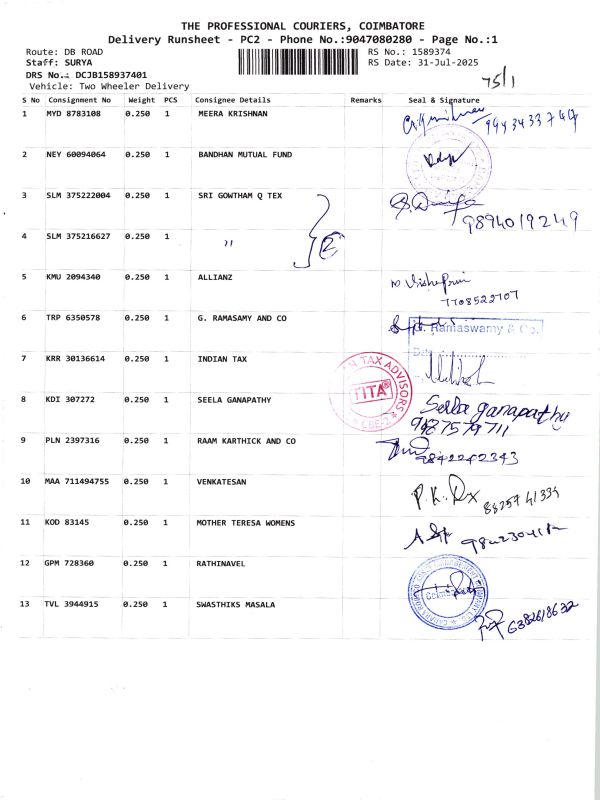 THE PROFESSIONAL COURIERS, COIMBATORE
Delivery Runsheet - PC2 - Phone No.:9047080280 - Page No.:1
Route: DB ROAD RS No.: 1589374
Staff: SURYA RS Date: 31-Jul-2025
DRS No.: DCJB158937401
Vehicle: Two Wheeler Delivery
75/1
S No Consignment No Weight PCS Consignee Details Remarks Seal & Signature
1 MYD 8783108 0.250 1 MEERA KRISHNAN
2 NEY 60094064 0.250 1 BANDHAN MUTUAL FUND
3 SLM 375222004 0.250 1 SRI GOWTHAM Q TEX
9894019249
4 SLM 375216627 0.250 1 " 2
5 KMU 2094340 0.250 1 ALLIANZ
7708522707
6 TRP 6350578 0.250 1 G. RAMASAMY AND CO Ramaswamy & Co.
Date
7 KRR 30136614 0.250 1 INDIAN TAX
TAX ADVISORS
ITA
8 KDI 307272 0.250 1 SEELA GANAPATHY Seela ganapathy
9487579711
9 PLN 2397316 0.250 1 RAAM KARTHICK AND CO
9842242343
10 MAA 711494755 0.250 1 VENKATESAN
11 KOD 83145 0.250 1 MOTHER TERESA WOMENS
12 GPM 728360 0.250 1 RATHINAVEL
13 TVL 3944915 0.250 1 SWASTHIKS MASALA
6382618632